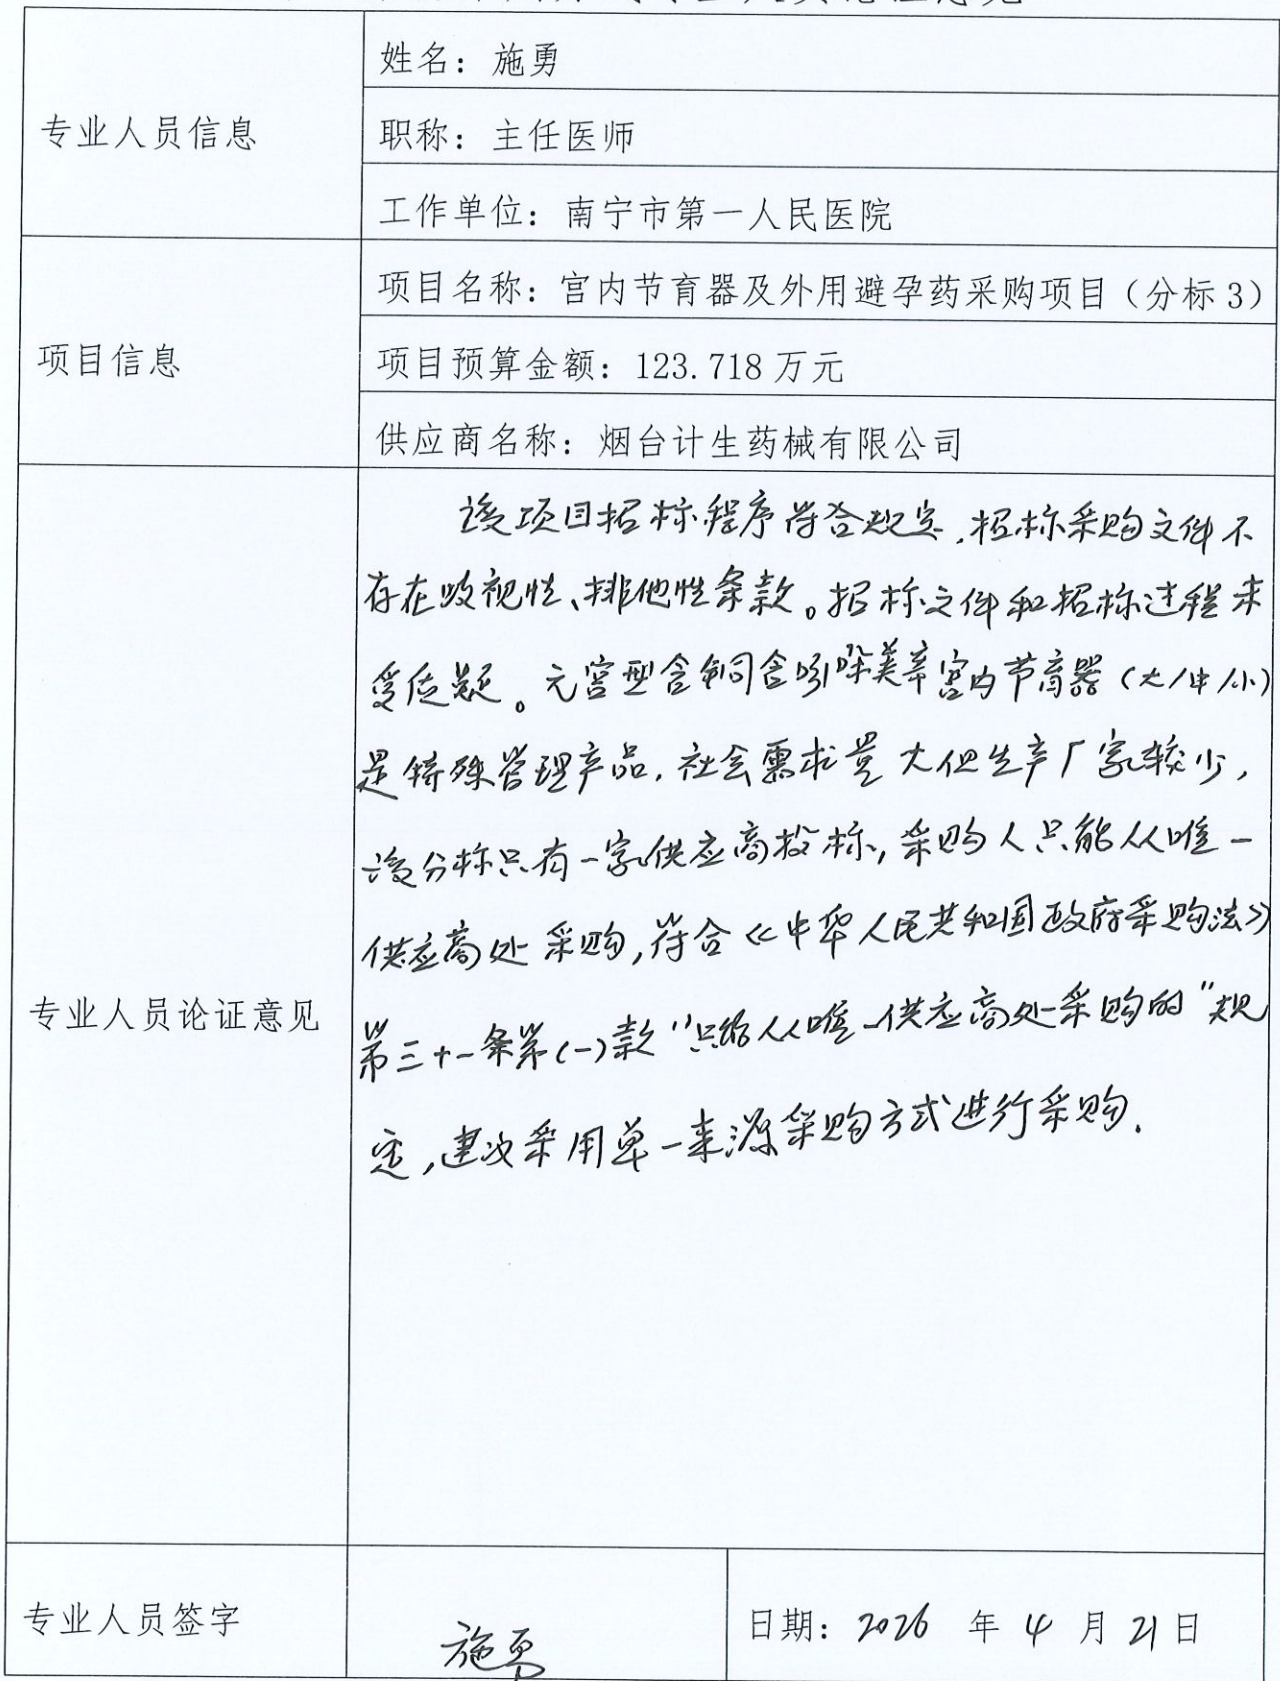 专业人员信息
姓名：施勇
职称：主任医师
工作单位：南宁市第一人民医院
项目信息
项目名称：宫内节育器及外用避孕药采购项目（分标3）
项目预算金额：123.718万元
供应商名称：烟台计生药械有限公司
专业人员论证意见
该项目招标程序符合规定，招标采购文件不
存在歧视性、排他性条款。招标文件和招标过程未
受质疑。元宫型含铜含吲哚美辛宫内节育器（大/中/小）
是特殊管理产品，社会需求量大但生产厂家较少，
该分标只有一家供应商投标，采购人只能从唯一
供应商处采购，符合《中华人民共和国政府采购法》
第三十一条第(一)款"只能从唯一供应商处采购的"规
定，建议采用单一来源采购方式进行采购.
专业人员签字
施勇
日期：2026 年 4 月 21日